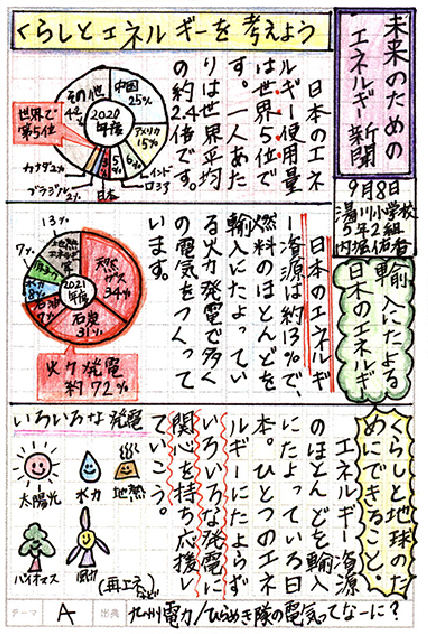 未来のための
エネルギー新聞
9月8日
湯川小学校
5年2組
くらしとエネルギーを考えよう
日本のエネ
ルギー使用量
は世界5位で
す。一人あた
りは世界平均
の約2.4倍です。
2020
年度
中国
25%
アメリカ
15%
インド
6%
ロシア
5%
日本
3%
ブラジル2%
カナダ2%
その他
42%
世界で
第5位
輸入にたよる
日本のエネルギー
日本のエネルギ
ー資源は約13%で、
燃料のほとんどを
輸入にたよってい
る火力発電で多く
の電気をつくって
います。
2021
年度
天然
ガス
34%
石炭
31%
石油
7%
水力
8%
原子力
7%
13%
火力発電
約72%
くらしと地球のた
めにできること。
エネルギー資源
のほとんどを輸入
にたよっている日
本。ひとつのエネ
ルギーにたよらず
いろいろな発電に
関心を持ち応援し
ていこう。
いろいろな発電
太陽光
水力
地熱
バイオマス
風力
(再エネ)
など
テーマ
A
出典
九州電力/ひらめき隊の電気ってなーに?